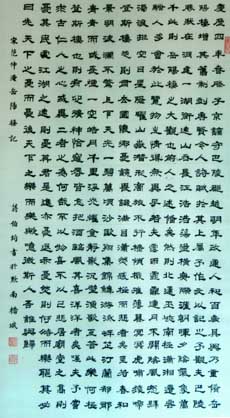 慶歷四年春滕子京謫守巴陵郡越明年政通人和百廢具興乃重修岳
陽樓增其舊制刻唐賢今人詩賦於其上屬予作文以記之予觀夫巴陵
勝狀在洞庭一湖銜遠山吞長江浩浩湯湯橫無際涯朝暉夕陰氣象萬
千此則岳陽樓之大觀也前人之述備矣然則北通巫峽南極瀟湘遷客
騷人多會於此覽物之情得無異乎若夫霪雨霏霏連月不開陰風怒號
濁浪排空日星隱曜山岳潛形商旅不行檣傾楫摧薄暮冥冥虎嘯猿啼
登斯樓也則有去國懷鄉憂讒畏譏滿目蕭然感極而悲者矣至若春和
景明波瀾不驚上下天光一碧萬頃沙鷗翔集錦鱗游泳岸芷汀蘭郁郁
青青而或長煙一空皓月千里浮光躍金靜影沉璧漁歌互答此樂何極
登斯樓也則有心曠神怡寵辱偕忘把酒臨風其喜洋洋者矣嗟夫予嘗
求古仁人之心或異二者之為何哉不以物喜不以己悲居廟堂之高則
憂其民處江湖之遠則憂其君是進亦憂退亦憂然則何時而樂耶其必
曰先天下之憂而憂後天下之樂而樂歟噫微斯人吾誰與歸
宋范仲淹岳陽樓記 蔣伯 書於黔南 城